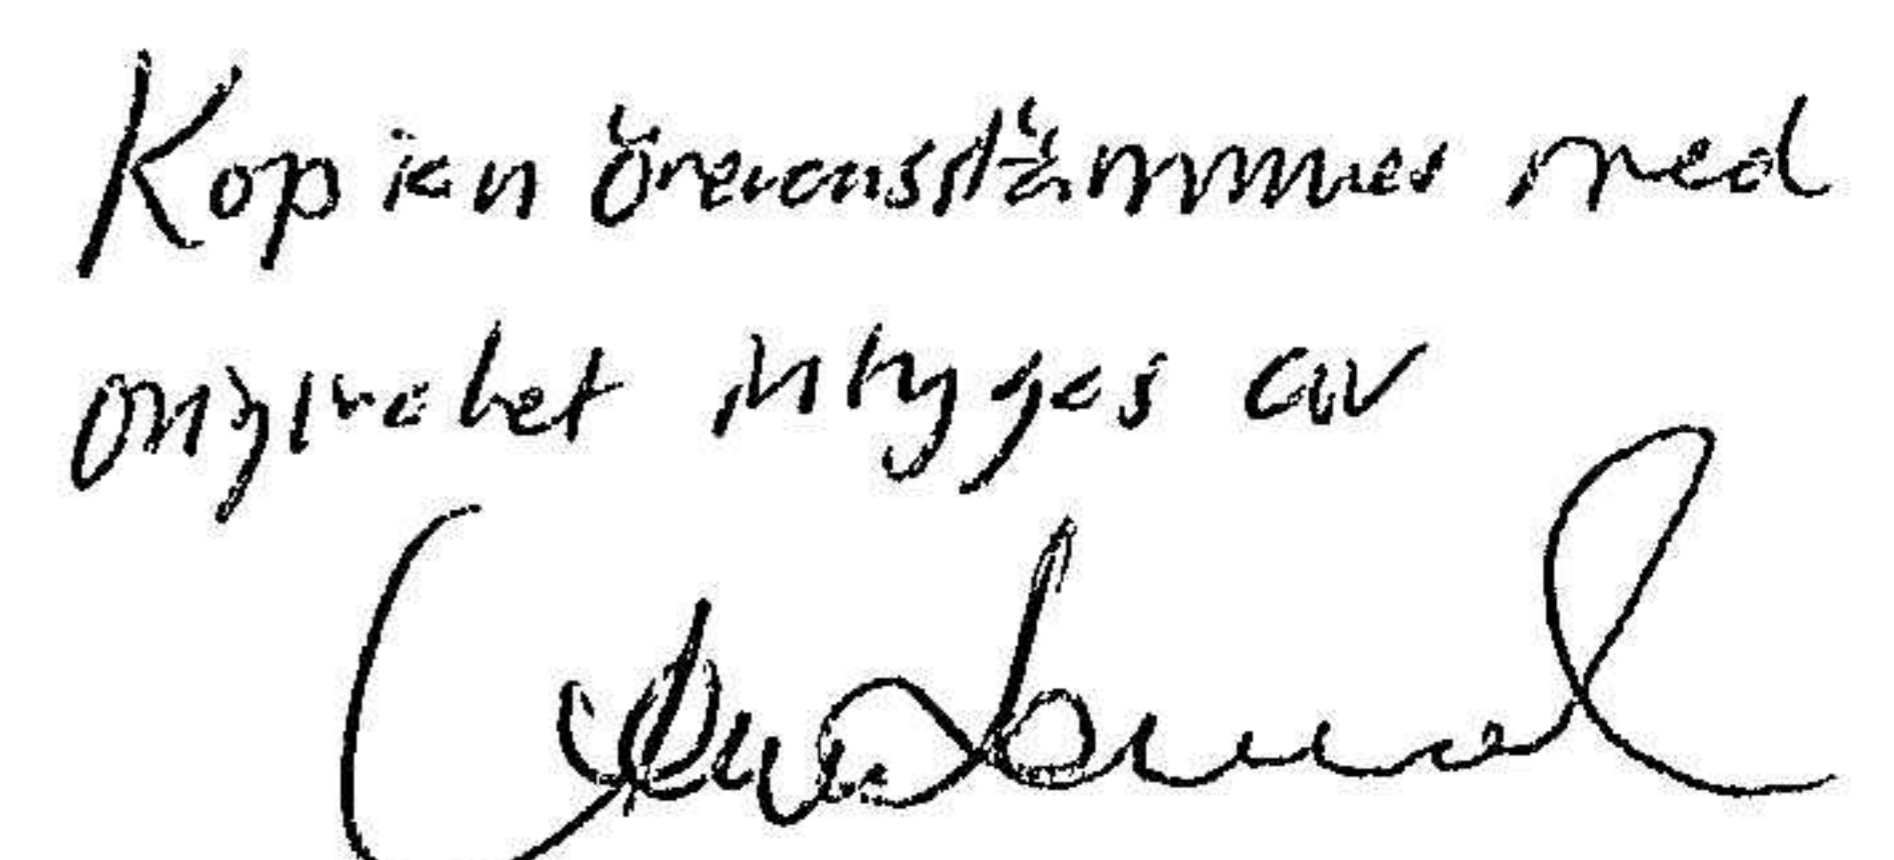 Kopian överensstämmer med
originalet intygas av